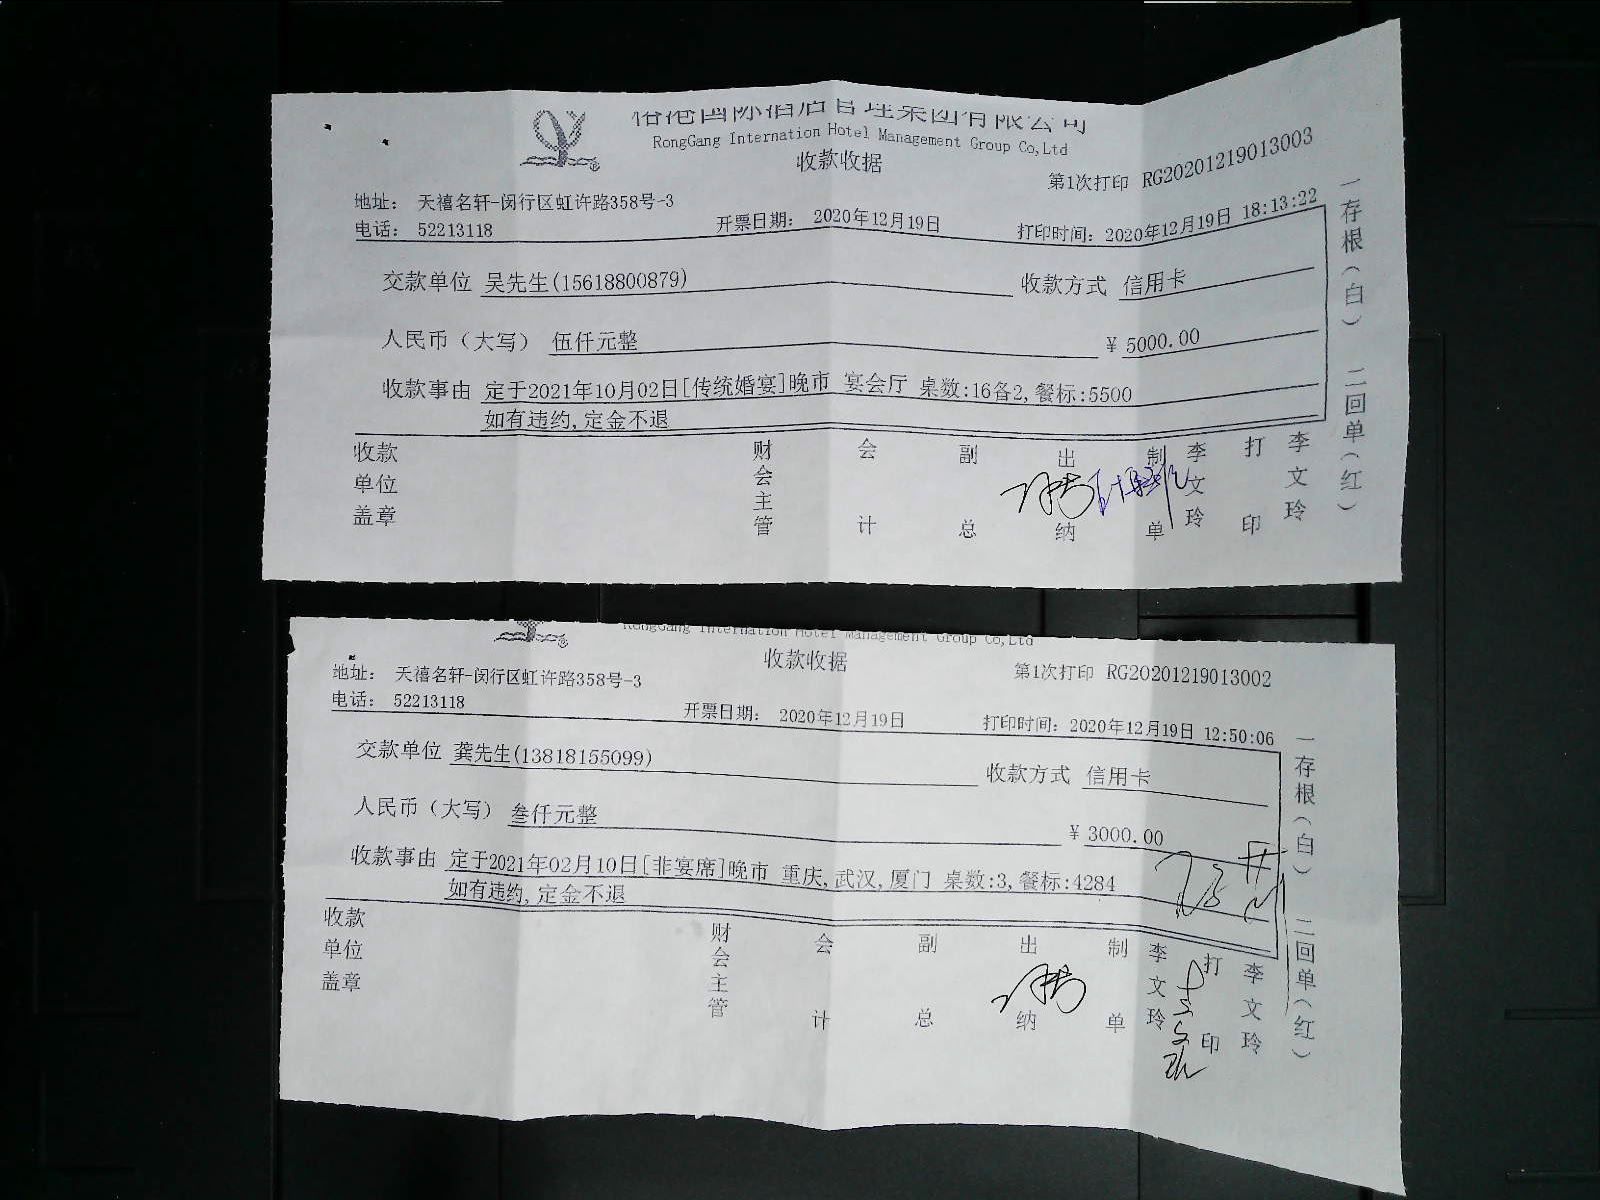 国际酒店管理集团有限公司
RongGang Internation Hotel Management Group Co,Ltd
收款收据
第1次打印 RG20201219013003
地址： 天禧名轩-闵行区虹许路358号-3
电话： 52213118
开票日期： 2020年12月19日
打印时间：2020年12月19日 18:13:22
交款单位 吴先生(15618800879)
收款方式 信用卡
人民币（大写） 伍仟元整
¥ 5000.00
收款事由 定于2021年10月02日[传统婚宴]晚市 宴会厅 桌数:16备2,餐标:5500
如有违约,定金不退
收款单位盖章 财会主管 会计 副总 出纳 制单 李文玲 打印 李文玲
一存根（白） 二回单（红）
RongGang Internation Hotel Management Group Co,Ltd
收款收据
第1次打印 RG20201219013002
地址： 天禧名轩-闵行区虹许路358号-3
电话： 52213118
开票日期： 2020年12月19日
打印时间：2020年12月19日 12:50:06
交款单位 龚先生(13818155099)
收款方式 信用卡
人民币（大写） 叁仟元整
¥ 3000.00
收款事由 定于2021年02月10日[非宴席]晚市 重庆,武汉,厦门 桌数:3,餐标:4284
如有违约,定金不退
收款单位盖章 财会主管 会计 副总 出纳 制单 李文玲 打印 李文玲
一存根（白） 二回单（红）